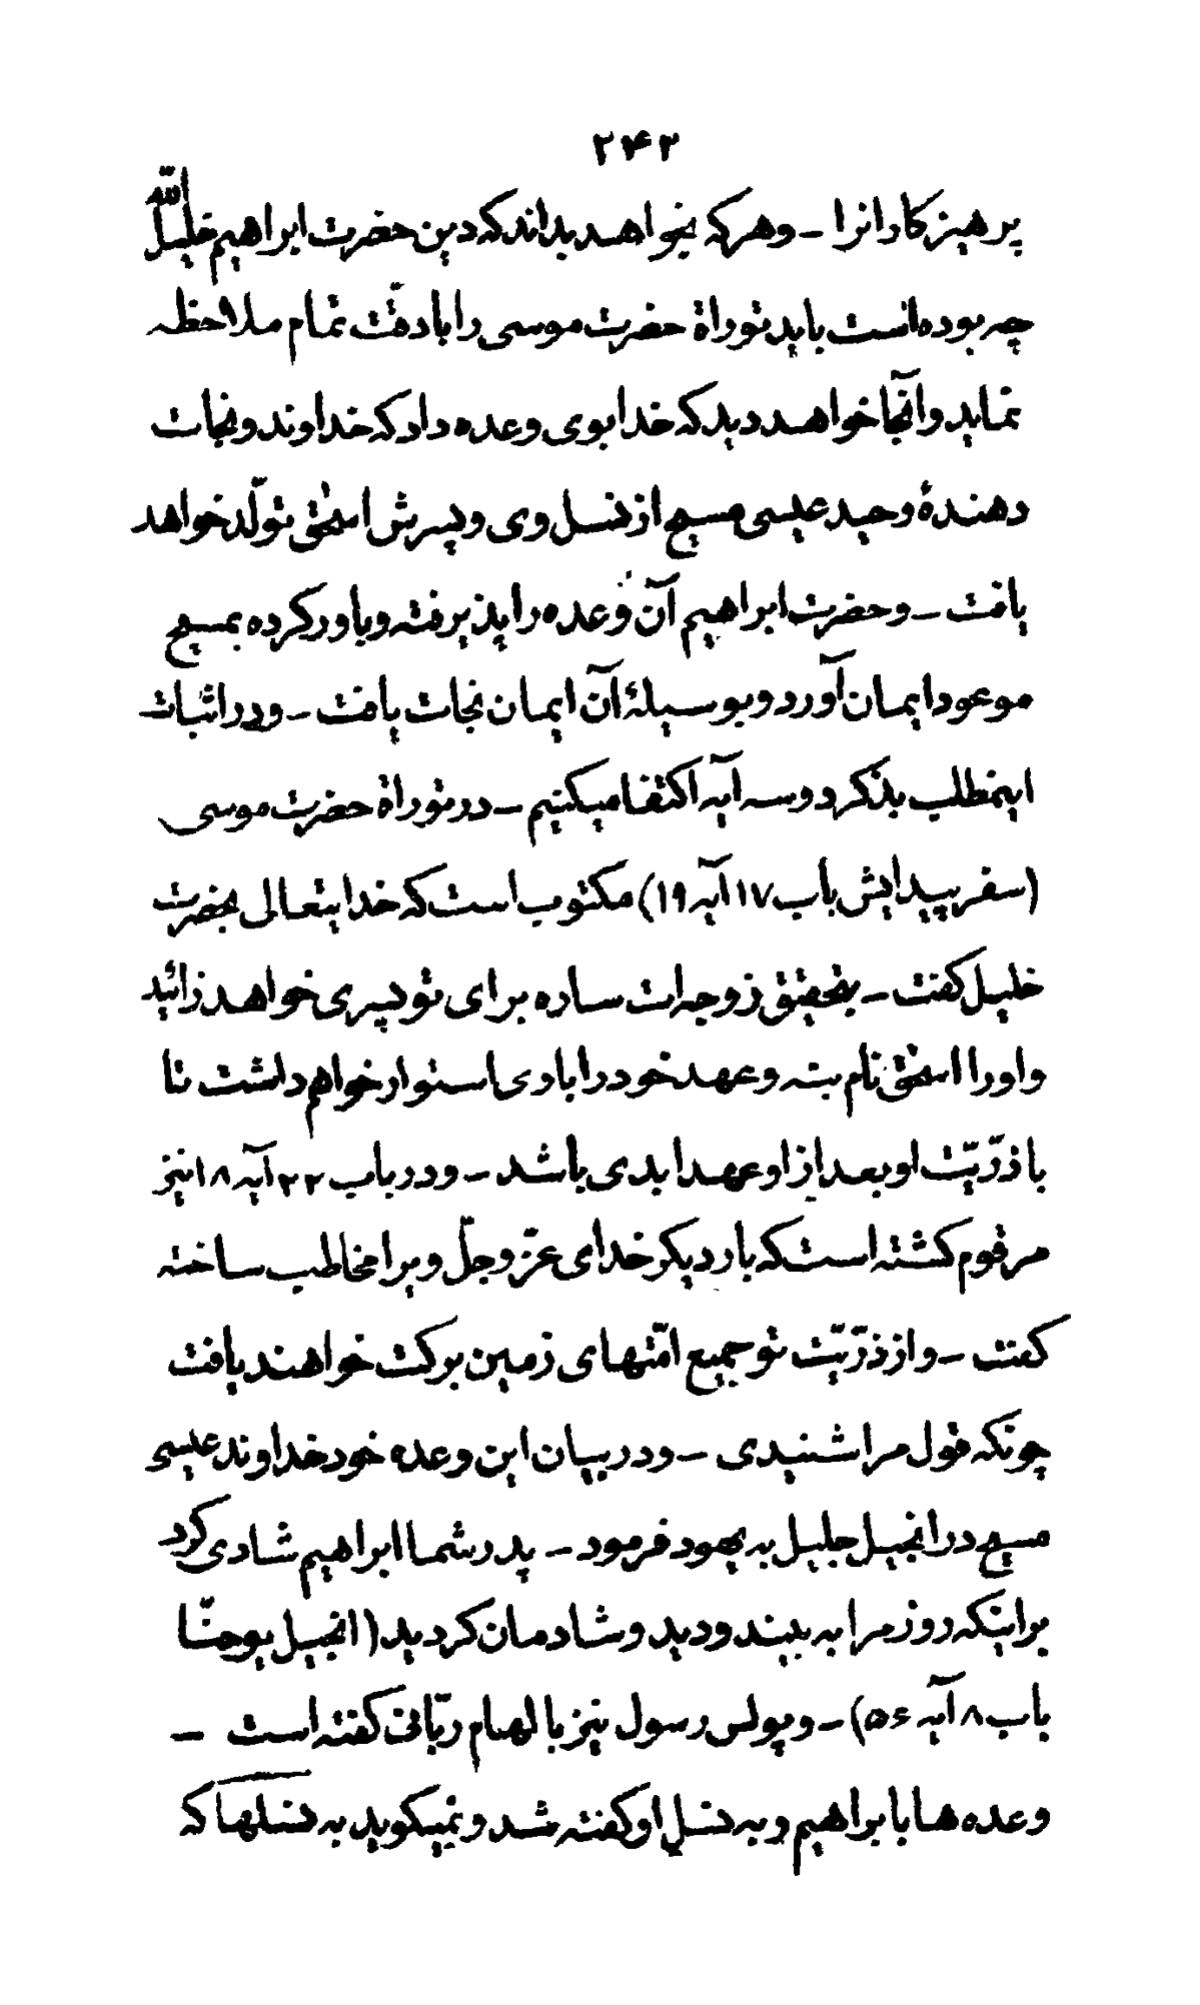 ۲۴۲
پرهیزکارانرا – وهرکه بخواهد بداند که دین حضرت ابراهیم خلیل الله
چه بوده است باید توراة حضرت موسی را با دقّت تمام ملاحظه
نماید و آنجا خواهد دید که خدا بوی وعده داد که خداوند و نجات
دهندۀ وحید عیسی مسیح از نسل وی و پسرش اسحٰق تولّد خواهد
یافت – و حضرت ابراهیم آن وعده را پذیرفته و باور کرده بمسیح
موعود ایمان آورد و بوسیلۀ آن ایمان نجات یافت – و در اثبات
اینمطلب بذکر دو سه آیه اکتفا میکنیم – در توراة حضرت موسی
(سفر پیدایش باب ۱۷ آیه ۱۹) مکتوب است که خدایتعالی بحضرت
خلیل گفت – بتحقیق زوجه ات ساره برای تو پسری خواهد زائید
و او را اسحٰق نام بنه و عهد خود را با وی استوار خواهم داشت تا
با ذرّیّت او بعد از او عهد ابدی باشد – و در باب ۲۲ آیه ۱۸ نیز
مرقوم کشته است که بار دیکر خدای عزّ و جلّ ویرا مخاطب ساخته
کفت – و از ذرّیّت تو جمیع امّتهای زمین برکت خواهند یافت
چونکه قول مرا شنیدی – و در بیان این وعده خود خداوند عیسی
مسیح در انجیل جلیل به یهود فرمود – پدر شما ابراهیم شادی کرد
بر اینکه روز مرا به بیند و دید و شادمان کردید (انجیل یوحنّا
باب ۸ آیه ۵۶) – و پولس رسول نیز با الهام ربّانی کفته است –
وعده ها با براهیم و به نسل او کفته شد و نمیکوید به نسلها که